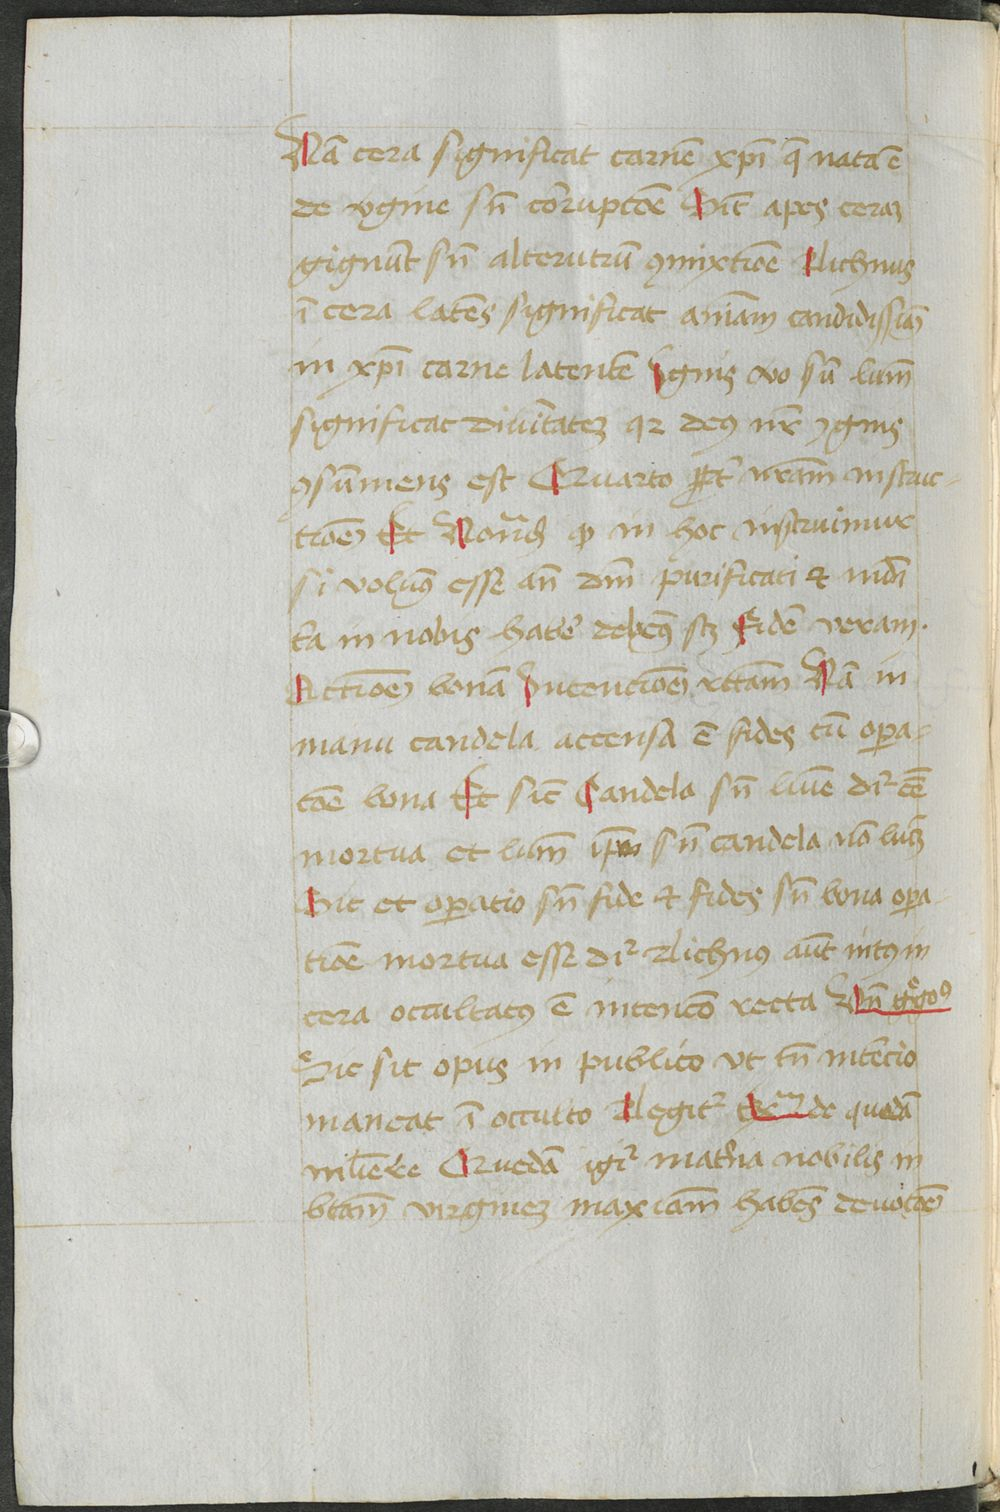 Nā cera significat carnē xp̄i q̄ nata ē
de v̓gine sn̄ corrupcōe Sic̄ apes ceraꝫ
gignūt sn̄ alterutrū ꝯmixtiōe Lichnus
ī cera latēs significat aīam candidissiā
in xp̄i carne latentē Ignis v̓o sū lūm
significat diuītatē qꝛ deꝰ nr̄ ygnis
ꝯsūmens est Quarto ꝓpt̓ nr̄am instruc-
tiōē Et Notand̄ ꝙ in hoc instruimur
si volūꝰ esse an̄ dm̄ purificati & mūdi
t̓a in nobis habē debemꝰ scꝫ Fidē veram.
Actiōē bonā Intenciōē rectam Nā in
manu candela accensa ē fides cū oꝑa-
cōe bona Et sic̄ Candela sn̄ lūīe dr̄ eē
mortua et lūm ip̄m sn̄ candela nō lucꝫ
Sic et oꝑatio sn̄ fide & fides sn̄ bona oꝑa-
tiōe mortua esse dr̄ Lichnꝰ aūt intꝰ in
cera occultatꝰ ē intencō recta Vn̄ g̊goꝰ
Sic sit opus in publico vt tn̄ intēcio
maneat ī occulto Legit̓ de quadā
mulīe̓e Quedā igr̄ mat̓na nobilis in
btām virgineꝫ maxiām habēs deuocōē